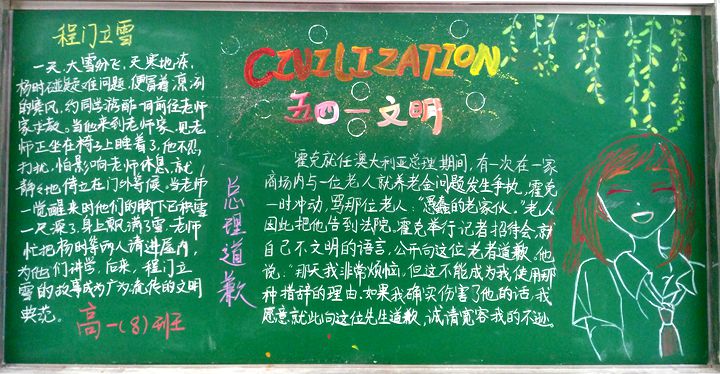 程门立雪
一天,大雪纷飞,天寒地冻,
杨时碰疑难问题,便冒着凛冽
的寒风,约同学游酢一同前往老师
家求教。当他来到老师家,见老
师正坐在椅子上睡着了,他不忍
打扰,怕影响老师休息,就
静静地侍立在门外等候。当老师
一觉醒来时他们的脚下已积雪
一尺深了,身上飘满了雪。老师
忙把杨时等两人请进屋内,
为他们讲学,后来,程门立
雪的故事成为广为流传的文明
典范。
高一(8)班
CIVILIZATION
五四一文明
总理道歉
霍克就任澳大利亚总理期间,有一次在一家
商场内与一位老人就养老金问题发生争执,霍克
一时冲动,骂那位老人、“愚蠢的老家伙。”老人
因此把他告到法院,霍克举行记者招待会,就
自己不文明的语言,公开向这位老者道歉,他
说:“那天我非常烦恼,但这不能成为我使用那
种措辞的理由.如果我确实伤害了他的话,我
愿意就此向这位先生道歉,诚请宽容我的不逊。